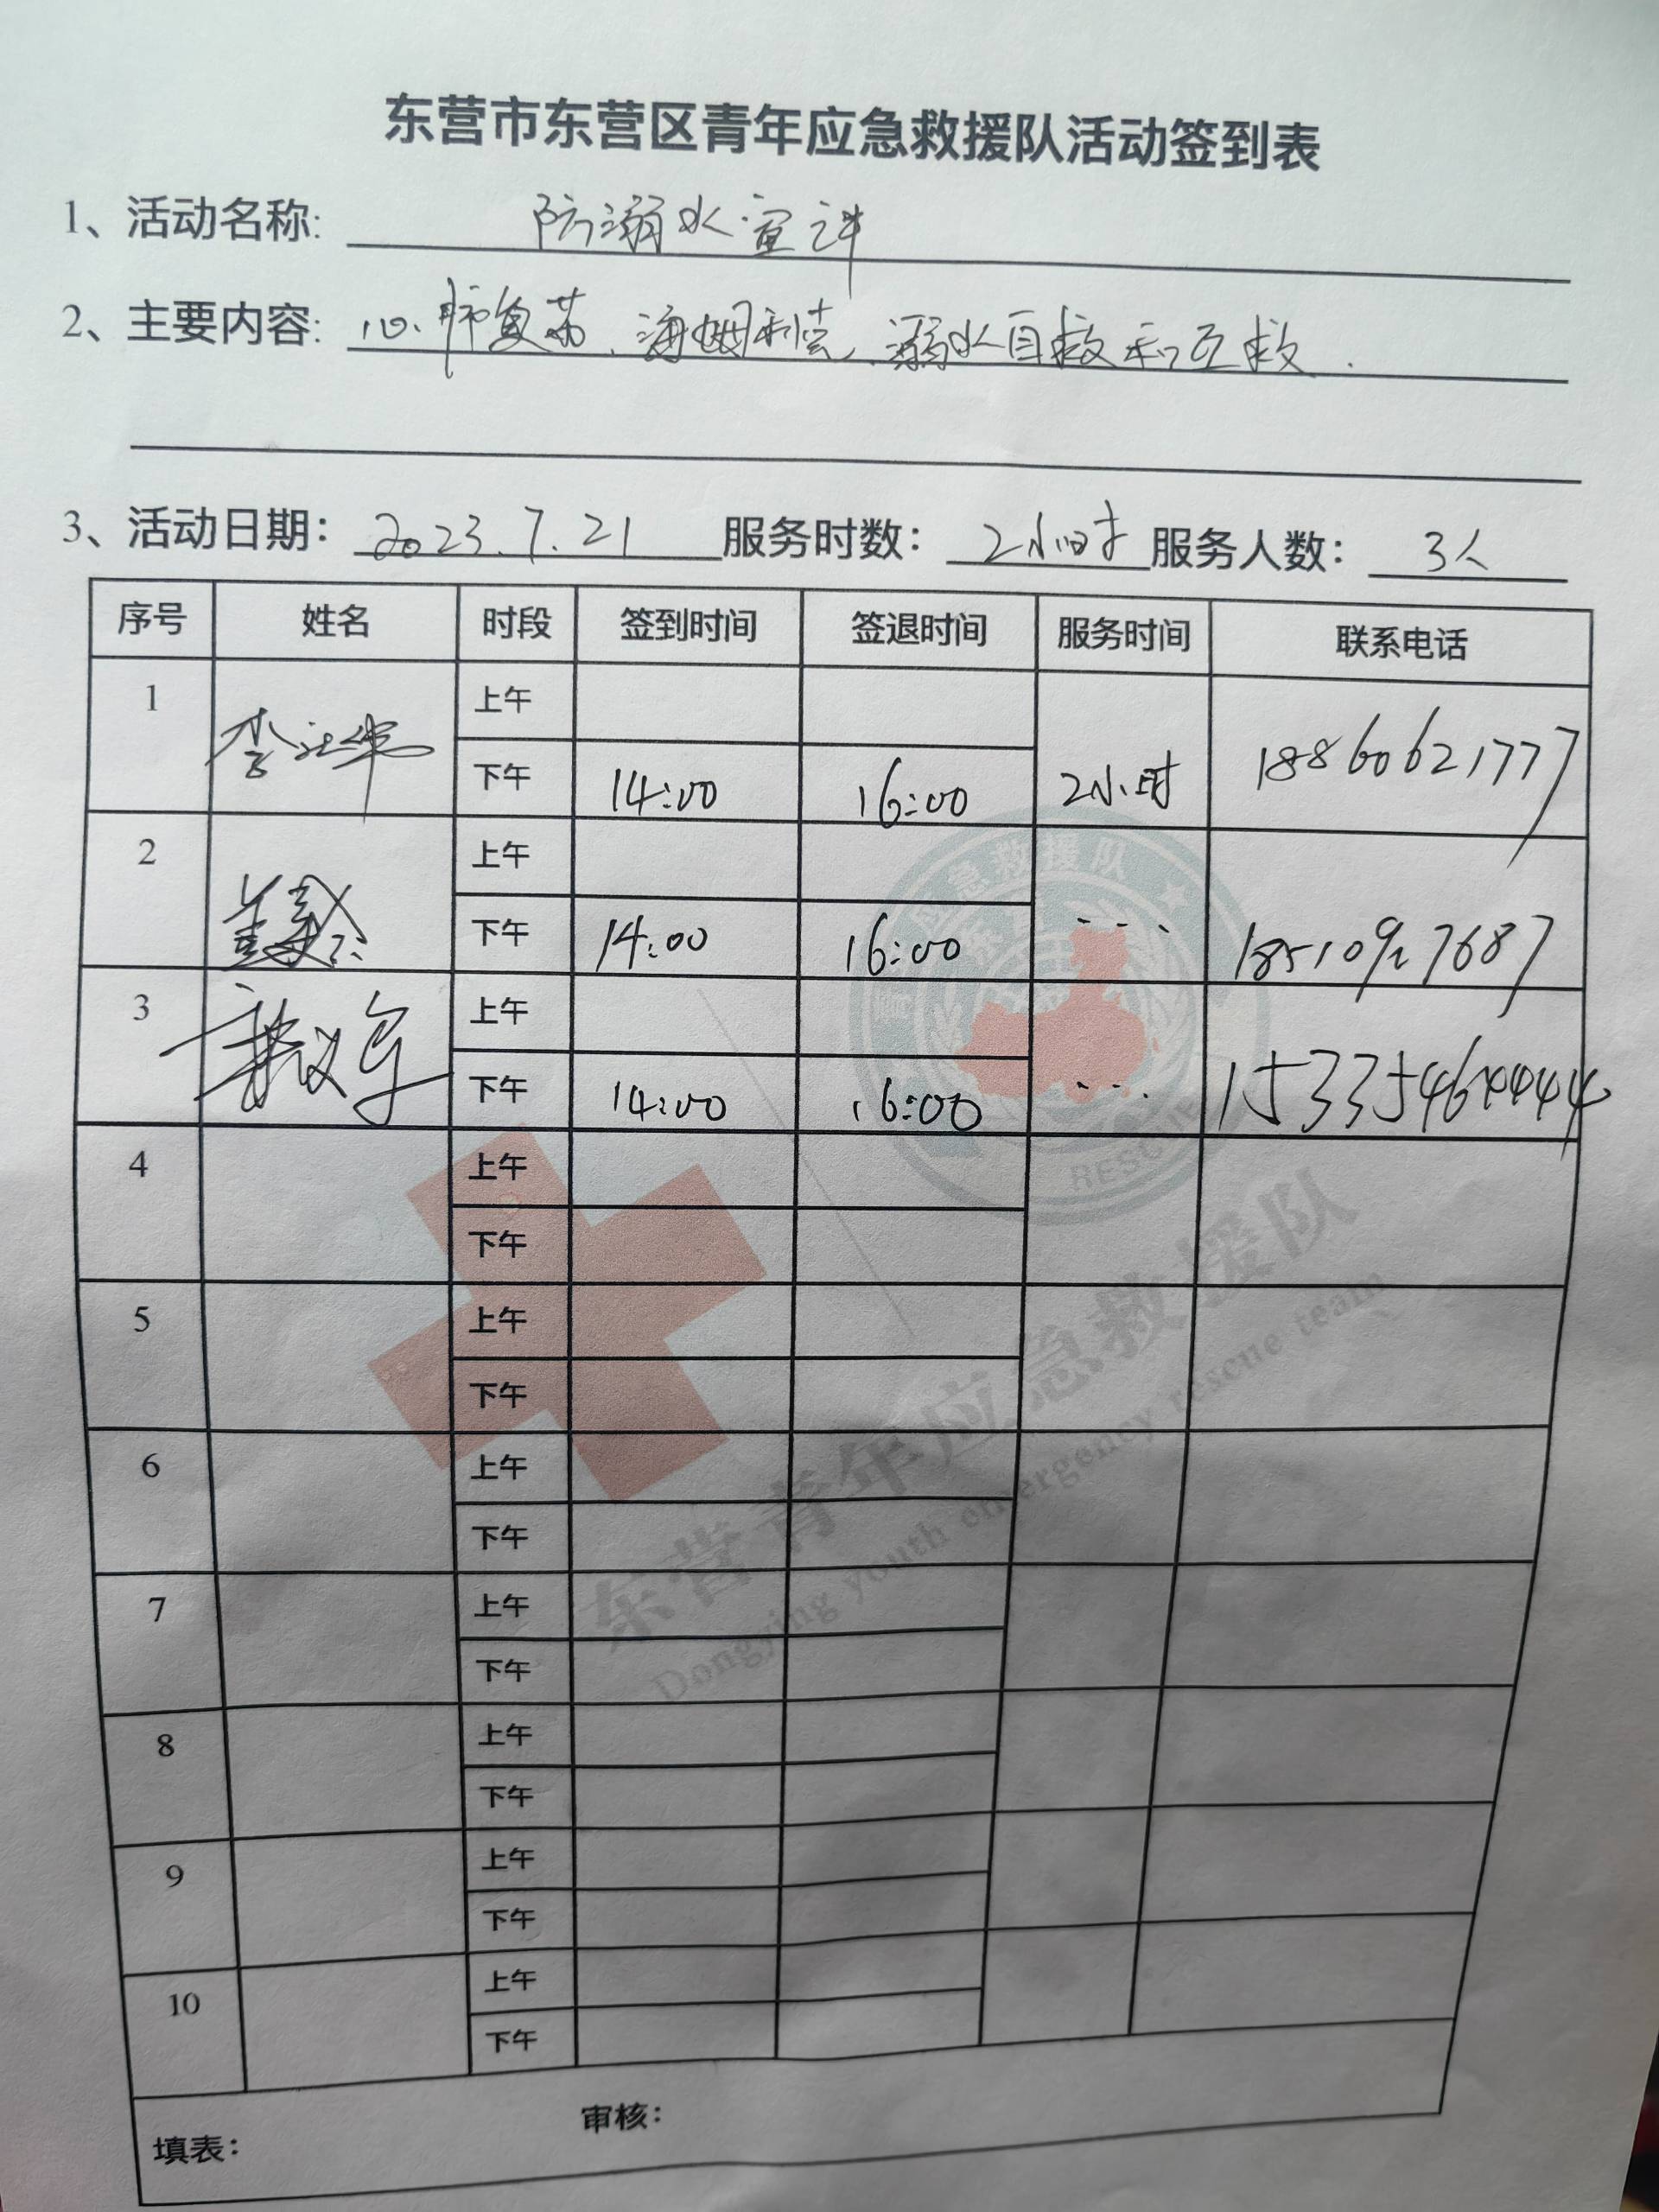 东营市东营区青年应急救援队活动签到表
1、活动名称: 防溺水宣讲
2、主要内容: 心肺复苏、海姆利克、溺水自救和互救.
3、活动日期: 2023.7.21 服务时数: 2小时 服务人数: 3人
序号 姓名 时段 签到时间 签退时间 服务时间 联系电话
1 上午
李 下午 14:00 16:00 2小时 18860621777
2 上午
下午 14:00 16:00 18510927687
3 上午
下午 14:00 16:00 15335464444
4 上午
下午
5 上午
下午
6 上午
下午
7 上午
下午
8 上午
下午
9 上午
下午
10 上午
下午
填表: 审核:
应急救援队
RESCUE
东营青年应急救援队
Dongying youth emergency rescue team